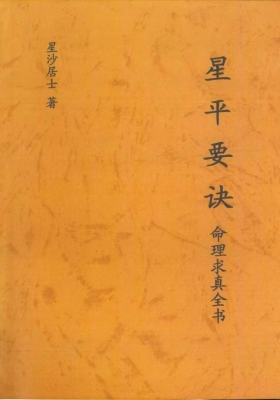 星平要诀
命理求真全书
星沙居士 著